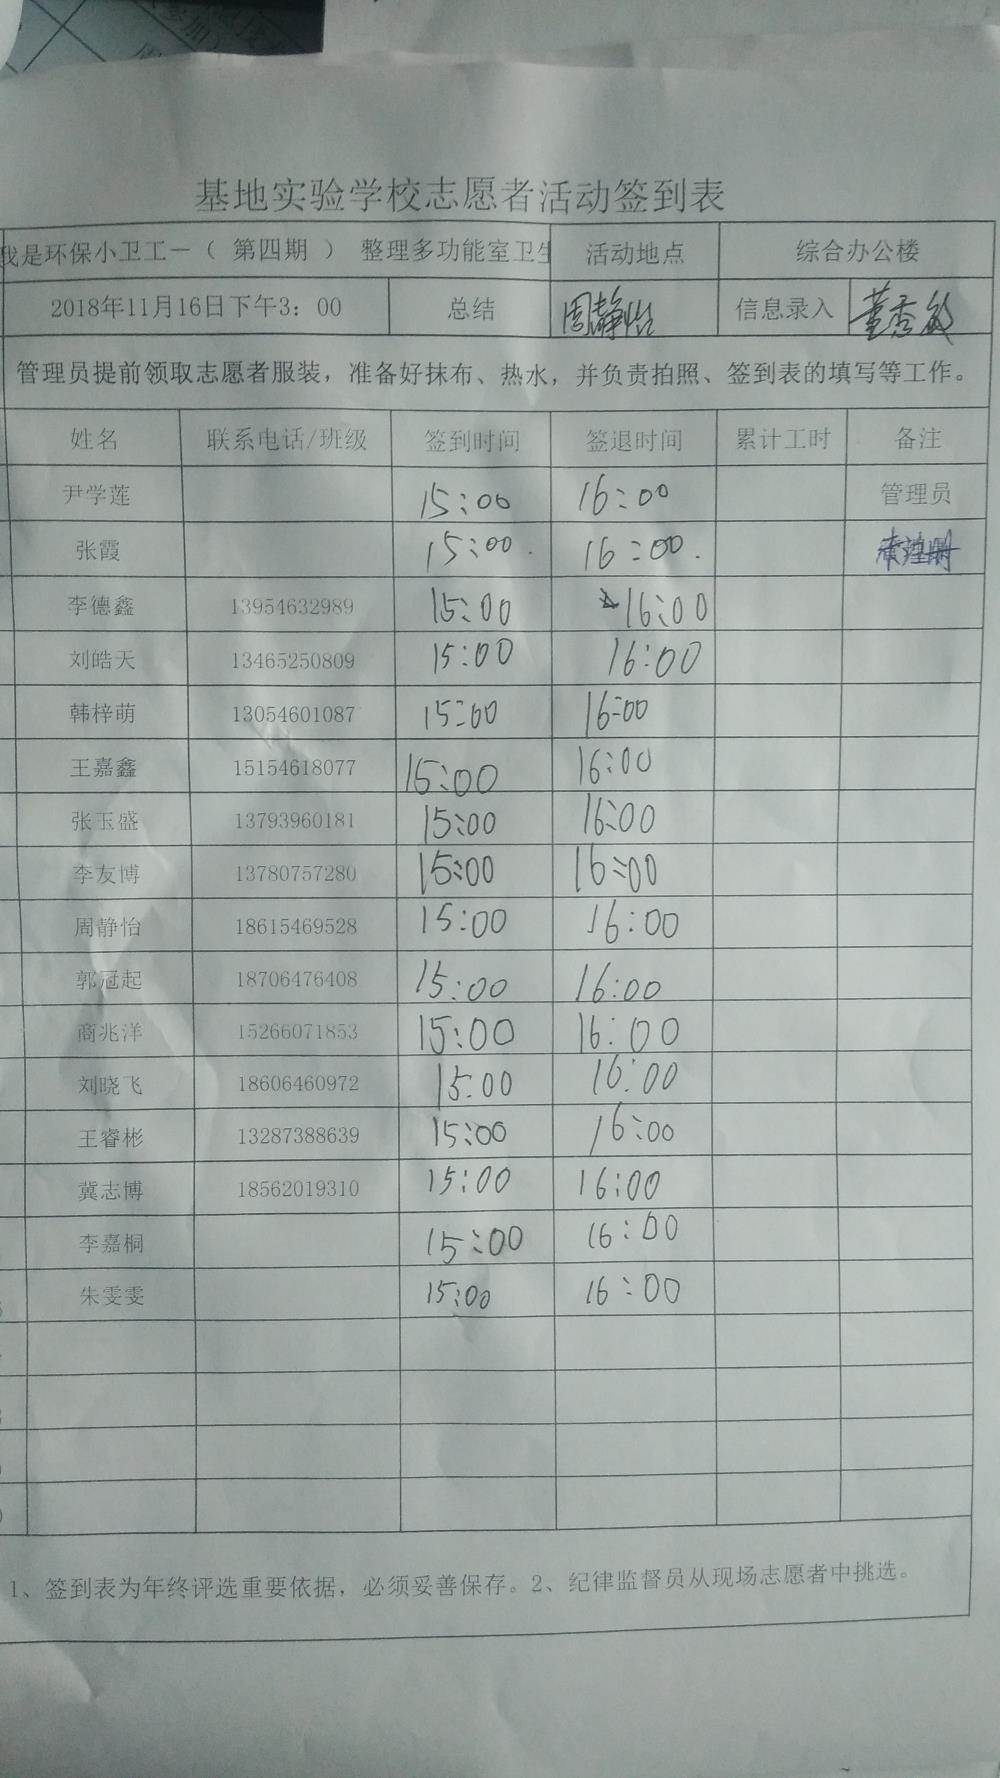 基地实验学校志愿者活动签到表
我是环保小卫工－（ 第四期 ） 整理多功能室卫生 活动地点 综合办公楼
2018年11月16日下午3：00 总结 周静怡 信息录入 董秀敏
管理员提前领取志愿者服装，准备好抹布、热水，并负责拍照、签到表的填写等工作。
姓名 联系电话/班级 签到时间 签退时间 累计工时 备注
尹学莲 15:00 16:00 管理员
张霞 15:00. 16:00.
李德鑫 13954632989 15:00 16:00
刘皓天 13465250809 15:00 16:00
韩梓萌 13054601087 15:00 16:00
王嘉鑫 15154618077 15:00 16:00
张玉盛 13793960181 15:00 16:00
李友博 13780757280 15:00 16:00
周静怡 18615469528 15:00 16:00
郭冠起 18706476408 15:00 16:00
商兆洋 15266071853 15:00 16:00
刘晓飞 18606460972 15:00 16:00
王睿彬 13287388639 15:00 16:00
冀志博 18562019310 15:00 16:00
李嘉桐 15:00 16:00
朱雯雯 15:00 16:00
1、签到表为年终评选重要依据，必须妥善保存。2、纪律监督员从现场志愿者中挑选。